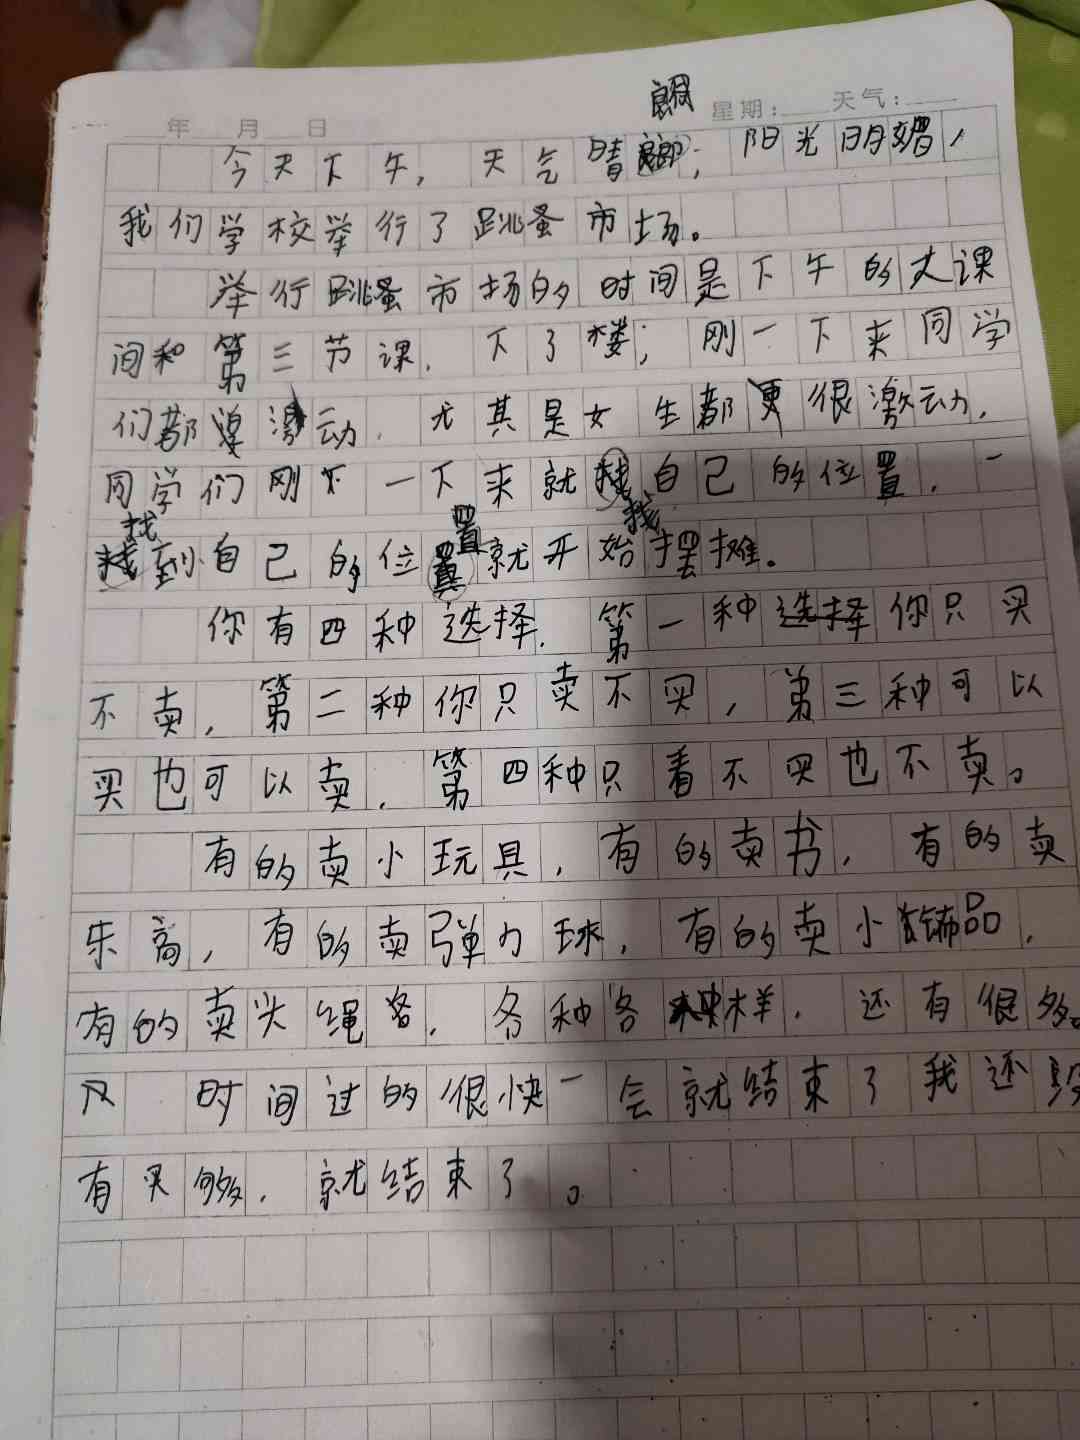 朗
年 月 日 星期： 天气：
今天下午，天气晴，阳光明媚，
我们学校举行了跳蚤市场。
举行跳蚤市场的时间是下午的大课
间和第三节课．下了楼；刚一下来同学
们都激动．尤其是女生都更很激动，
同学们刚下一下来就找自己的位置．一
找 置 找
找到自己的位置就开始摆摊。
你有四种选择．第一种选择你只买
不卖，第二种你只卖不买，第三种可以
买也可以卖．第四种只看不买也不卖。
有的卖小玩具，有的卖书．有的卖
乐高，有的卖弹力球，有的卖小饰品．
有的卖头绳各．各种各样．还有很多。
又 时间过的很快一会就结束了我还没
有买够．就结束了。